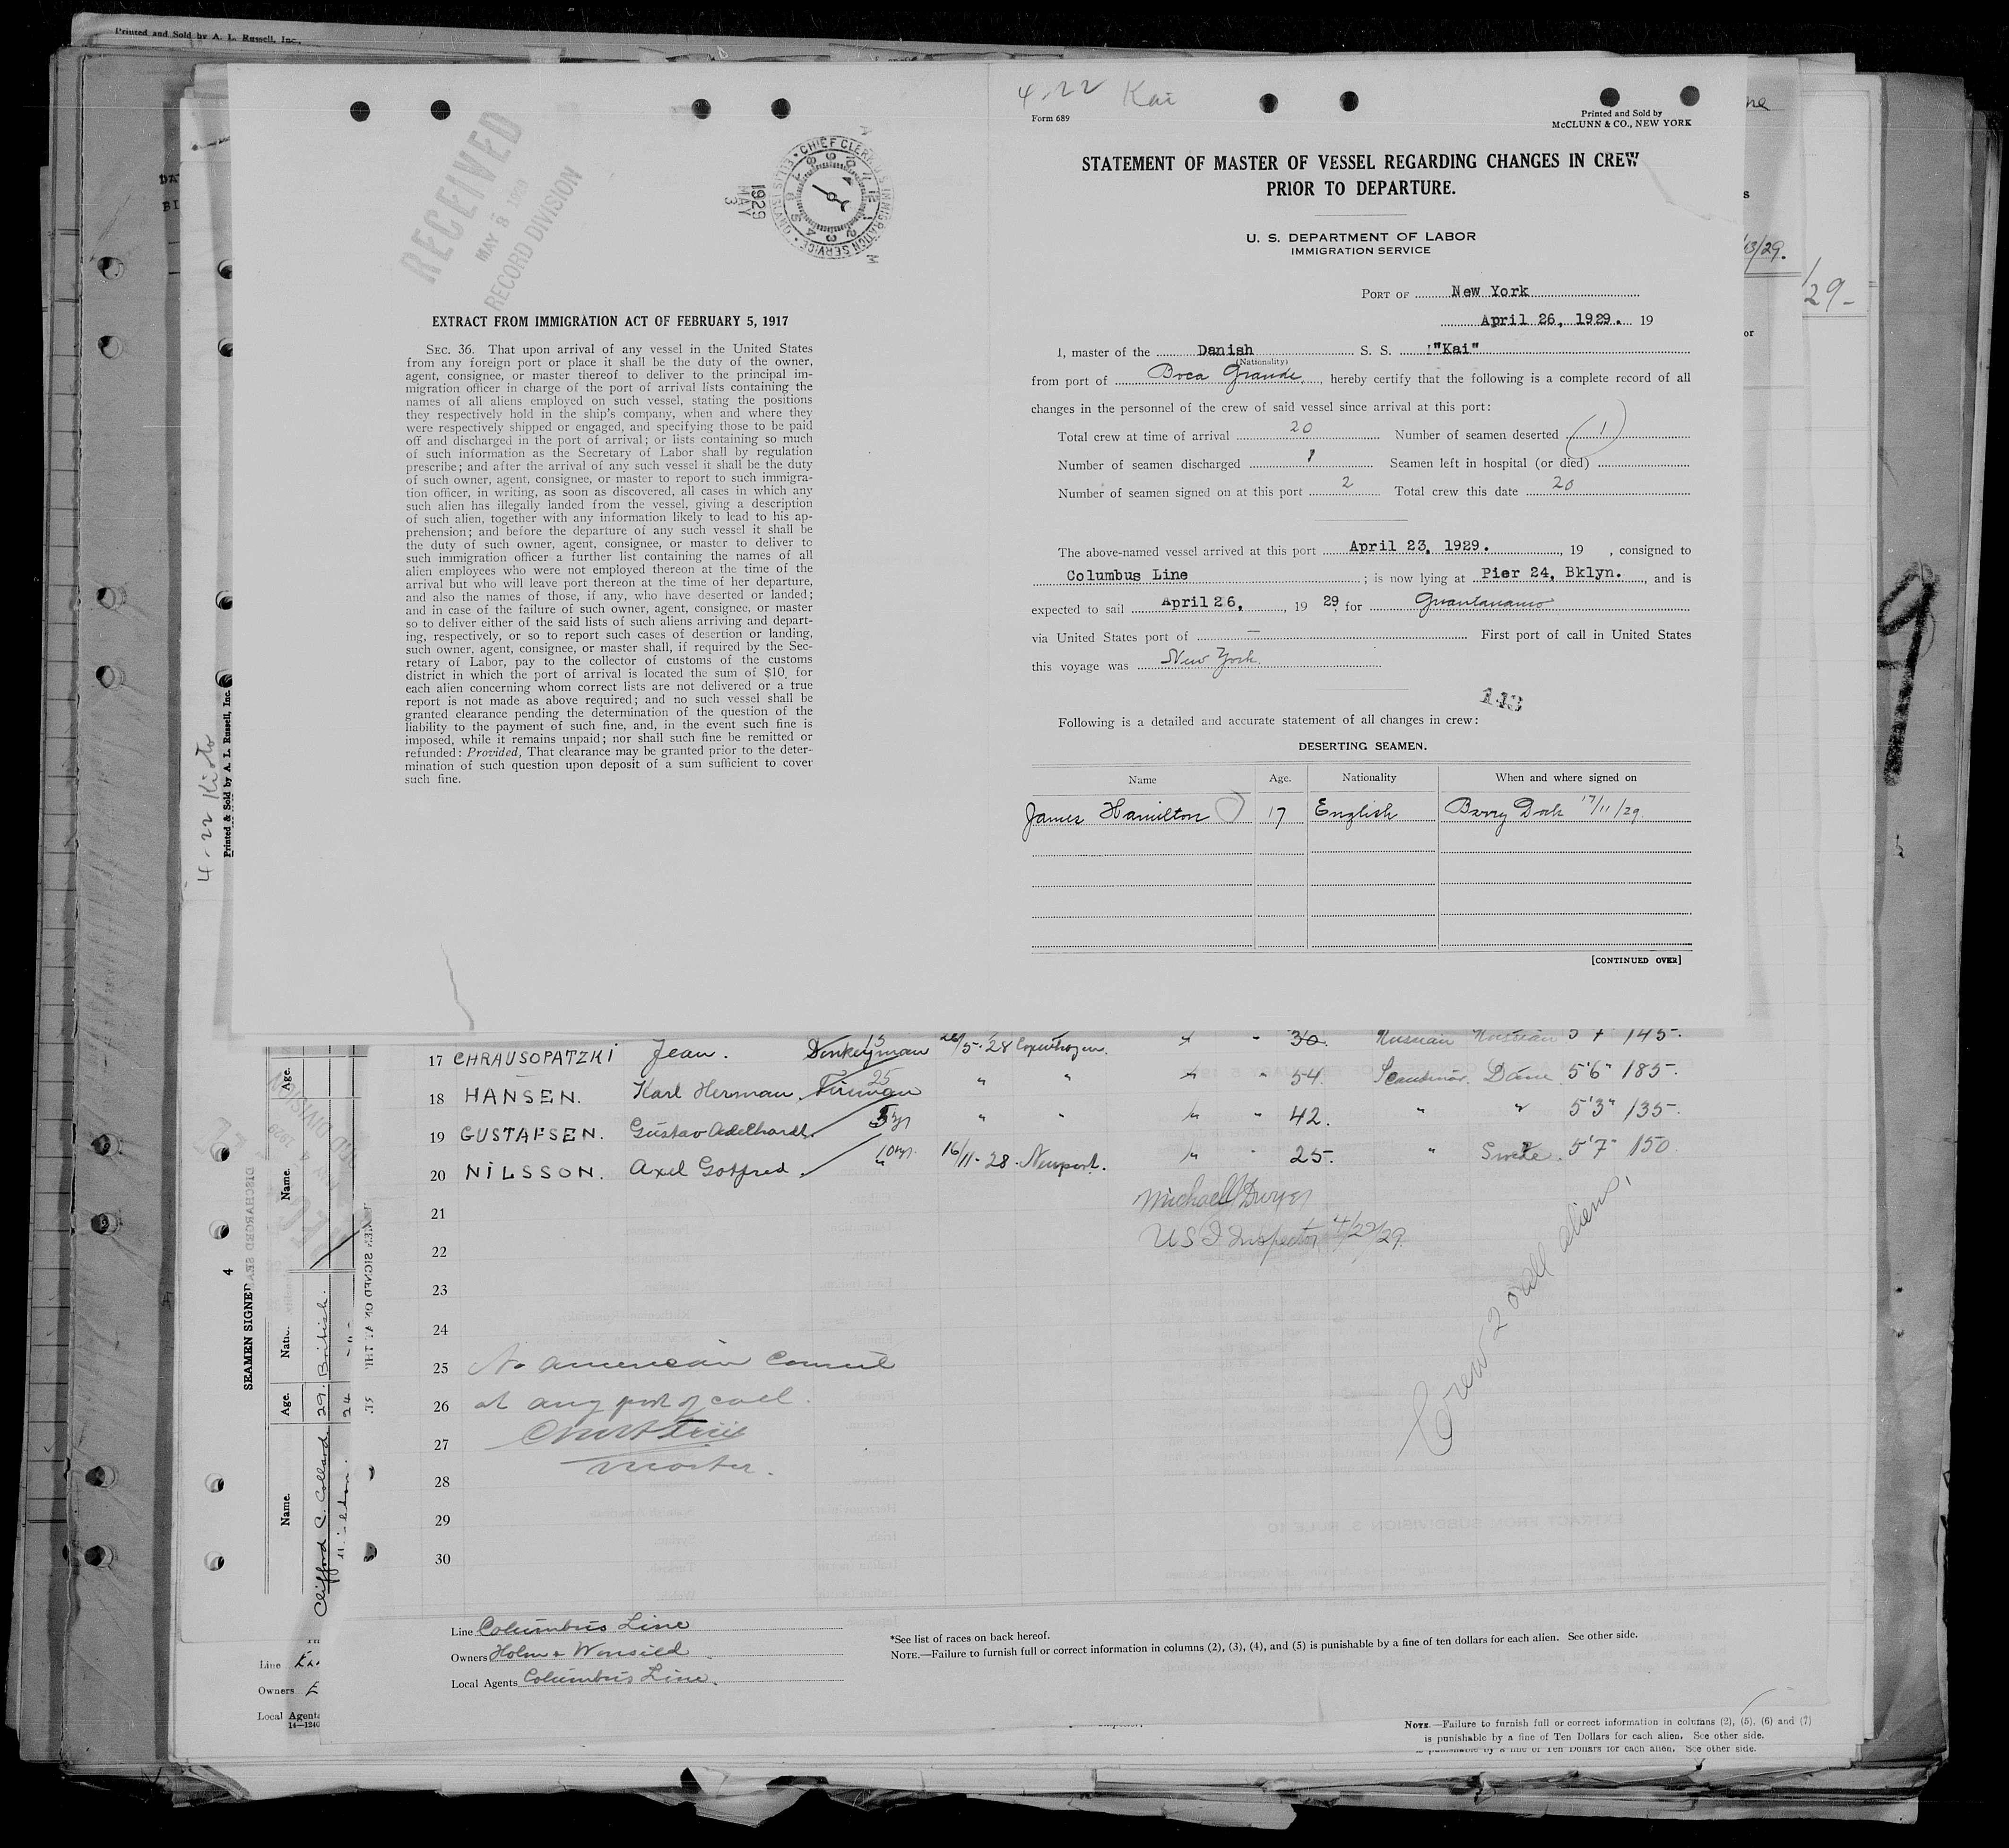 Printed and Sold by A. L. Russell, Inc.,
4-22 Kai
Form 689
Printed and Sold by
McCLUNN & CO., NEW YORK
RECEIVED
MAY 8
RECORD DIVISION
CHIEF CLERK U.S. IMMIGRATION SERVICE • ELLIS ISLAND •
1929
MAY
3
EXTRACT FROM IMMIGRATION ACT OF FEBRUARY 5, 1917
SEC. 36. That upon arrival of any vessel in the United States
from any foreign port or place it shall be the duty of the owner,
agent, consignee, or master thereof to deliver to the principal im-
migration officer in charge of the port of arrival lists containing the
names of all aliens employed on such vessel, stating the positions
they respectively hold in the ship's company, when and where they
were respectively shipped or engaged, and specifying those to be paid
off and discharged in the port of arrival; or lists containing so much
of such information as the Secretary of Labor shall by regulation
prescribe; and after the arrival of any such vessel it shall be the duty
of such owner, agent, consignee, or master to report to such immigra-
tion officer, in writing, as soon as discovered, all cases in which any
such alien has illegally landed from the vessel, giving a description
of such alien, together with any information likely to lead to his ap-
prehension; and before the departure of any such vessel it shall be
the duty of such owner, agent, consignee, or master to deliver to
such immigration officer a further list containing the names of all
alien employees who were not employed thereon at the time of the
arrival but who will leave port thereon at the time of her departure,
and also the names of those, if any, who have deserted or landed;
and in case of the failure of such owner, agent, consignee, or master
so to deliver either of the said lists of such aliens arriving and depart-
ing, respectively, or so to report such cases of desertion or landing,
such owner, agent, consignee, or master shall, if required by the Sec-
retary of Labor, pay to the collector of customs of the customs
district in which the port of arrival is located the sum of $10 for
each alien concerning whom correct lists are not delivered or a true
report is not made as above required; and no such vessel shall be
granted clearance pending the determination of the question of the
liability to the payment of such fine, and, in the event such fine is
imposed, while it remains unpaid; nor shall such fine be remitted or
refunded: Provided, That clearance may be granted prior to the deter-
mination of such question upon deposit of a sum sufficient to cover
such fine.
STATEMENT OF MASTER OF VESSEL REGARDING CHANGES IN CREW
PRIOR TO DEPARTURE.
U. S. DEPARTMENT OF LABOR
IMMIGRATION SERVICE
PORT OF New York
April 26, 1929. 19
I, master of the Danish S. S. "Kai"
(Nationality)
from port of Boca Grande, hereby certify that the following is a complete record of all
changes in the personnel of the crew of said vessel since arrival at this port:
Total crew at time of arrival 20 Number of seamen deserted 1
Number of seamen discharged 1 Seamen left in hospital (or died)
Number of seamen signed on at this port 2 Total crew this date 20
The above-named vessel arrived at this port April 23, 1929. , 19 , consigned to
Columbus Line ; is now lying at Pier 24, Bklyn. , and is
expected to sail April 26, , 19 29, for Guantanamo
via United States port of — First port of call in United States
this voyage was New York
143
Following is a detailed and accurate statement of all changes in crew:
DESERTING SEAMEN.
Name Age. Nationality When and where signed on
James Hamilton 17 English Barry Dock 17/11/29.
[CONTINUED OVER]
13/29.
/29-
9
4-22 Kioto
Printed & Sold by A. L. Russell, Inc.
17 CHRAUSOPATZKI Jean. Donkeyman 13 26/5-28 Copenhagen. " - 30. Russian Russian 5 7 145-.
18 HANSEN. Karl Herman. Fireman 25 " " " " 54. Scandinav. Dane 5'6" 185-.
19 GUSTAFSEN. Gustav Adelhardt. 5 yr " " " - 42. " " 5'3" 135-
20 NILSSON. Axel Gotfred. 10 yr. " 16/11-28-Newport. " - 25-. " Swede. 5'7" 150
21
Michael Dwyer
22
U S I Inspector 4/23/29.
23
24
Crew 20 all aliens,
25 No american Consul
26 at any port of call.
27
master.
28
29
30
4
SEAMEN SIGNED
DISCHARGED SEA
Name. Age. Natio. Name. Age.
Clifford C. Collard 29. British.
24 - " -
Line Columbus Line
Owners Holm & Wonsild
Local Agents Columbus Line.
*See list of races on back hereof.
NOTE.—Failure to furnish full or correct information in columns (2), (3), (4), and (5) is punishable by a fine of ten dollars for each alien. See other side.
Line
Owners
Local Agents
14—1240
NOTE.—Failure to furnish full or correct information in columns (2), (5), (6) and (7)
is punishable by a fine of Ten Dollars for each alien. See other side.
is punishable by a fine of Ten Dollars for each alien. See other side.